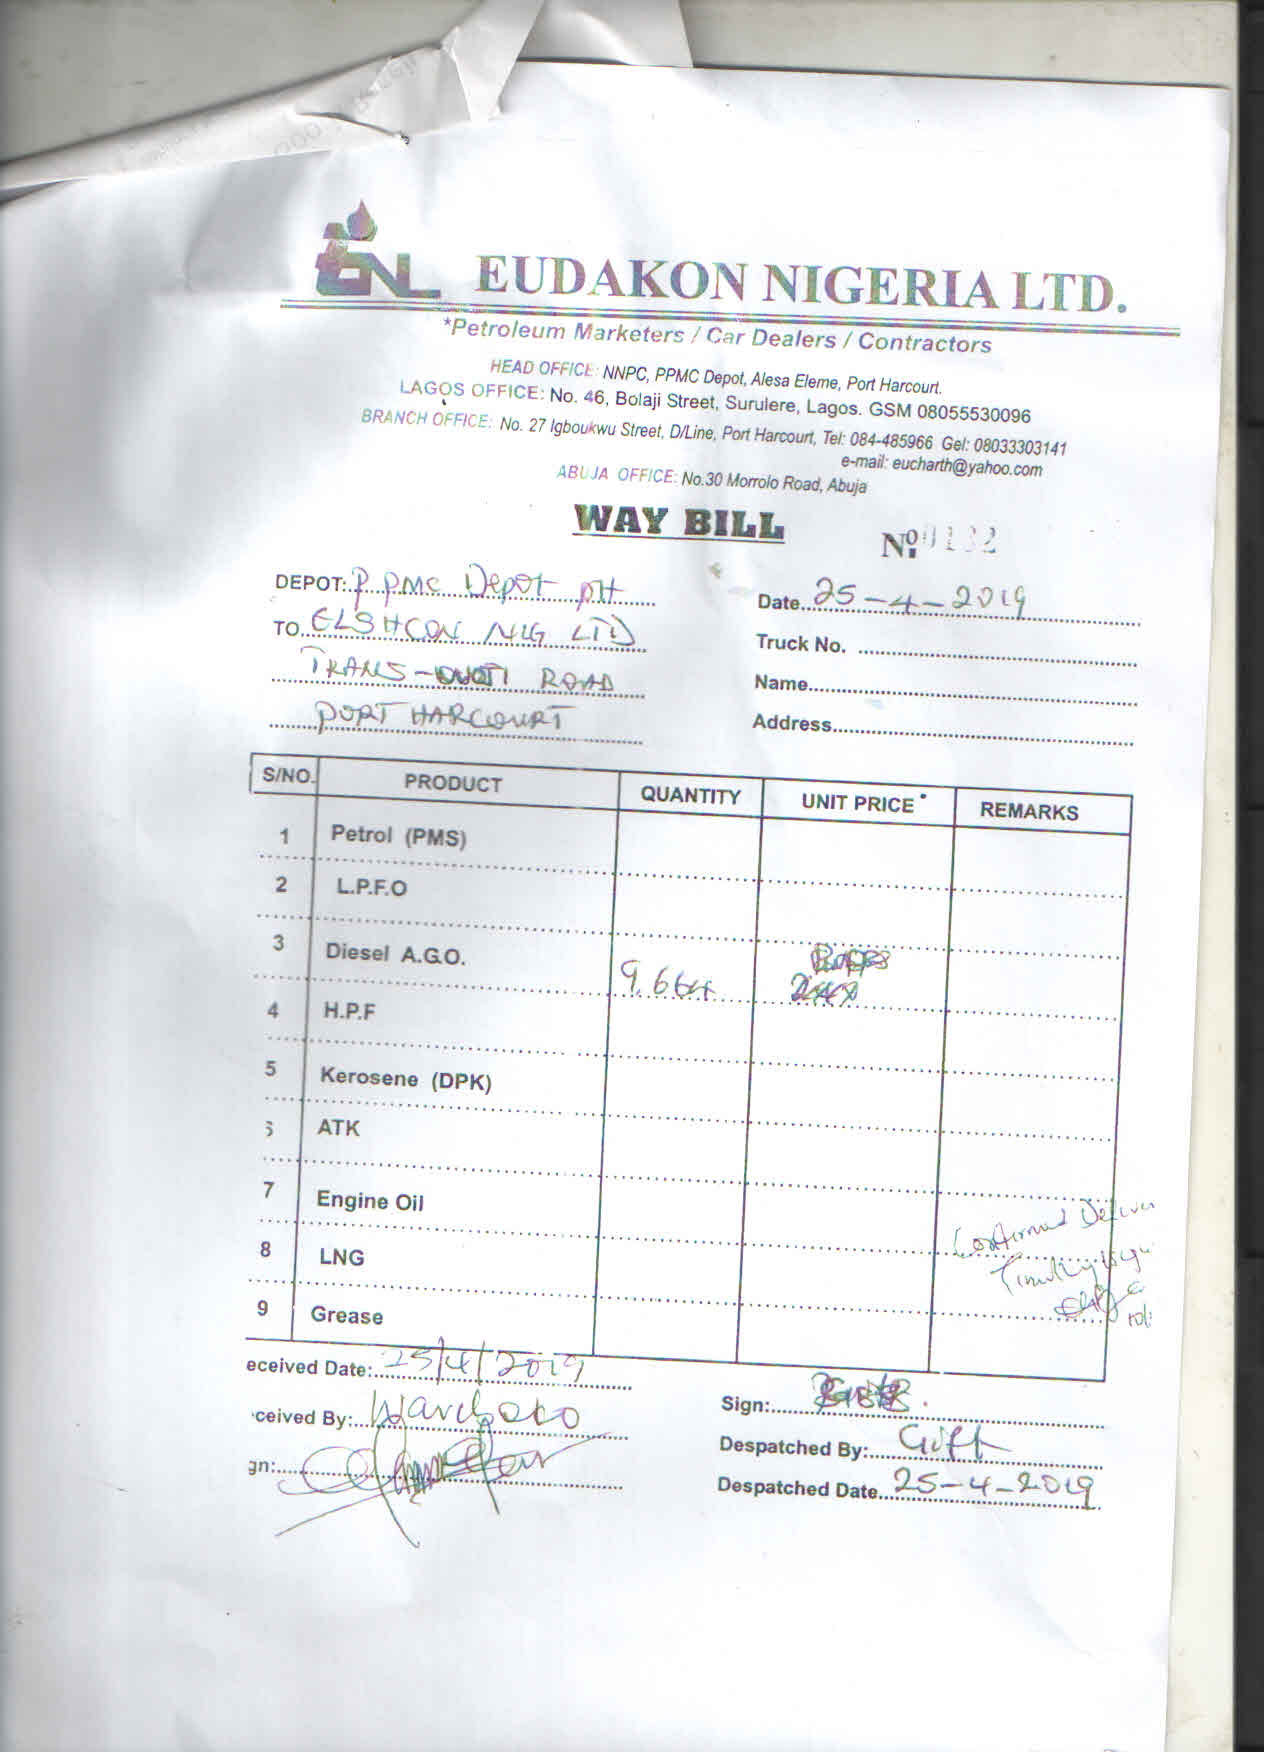 ENL EUDAKON NIGERIA LTD.
*Petroleum Marketers / Car Dealers / Contractors
HEAD OFFICE: NNPC, PPMC Depot, Alesa Eleme, Port Harcourt.
LAGOS OFFICE: No. 46, Bolaji Street, Surulere, Lagos. GSM 08055530096
BRANCH OFFICE: No. 27 Igboukwu Street, D/Line, Port Harcourt, Tel: 084-485966 Gel: 08033303141
e-mail: eucharth@yahoo.com
ABUJA OFFICE: No.30 Morrolo Road, Abuja
WAY BILL Nº. 0132
DEPOT: P.PMC Depot PH
Date 25-4-2019
TO ELSHCON NIG LTD
Truck No.
TRANS- ROAD
Name
PORT HARCOURT
Address
S/NO. PRODUCT QUANTITY UNIT PRICE REMARKS
1 Petrol (PMS)
2 L.P.F.O
3 Diesel A.G.O. 9.664
4 H.P.F
5 Kerosene (DPK)
6 ATK
7 Engine Oil
Confirmed Deliver
8 LNG
9 Grease
eceived Date: 25/4/2019
Sign:
ceived By:
Despatched By: Gift
gn:
Despatched Date 25-4-2019